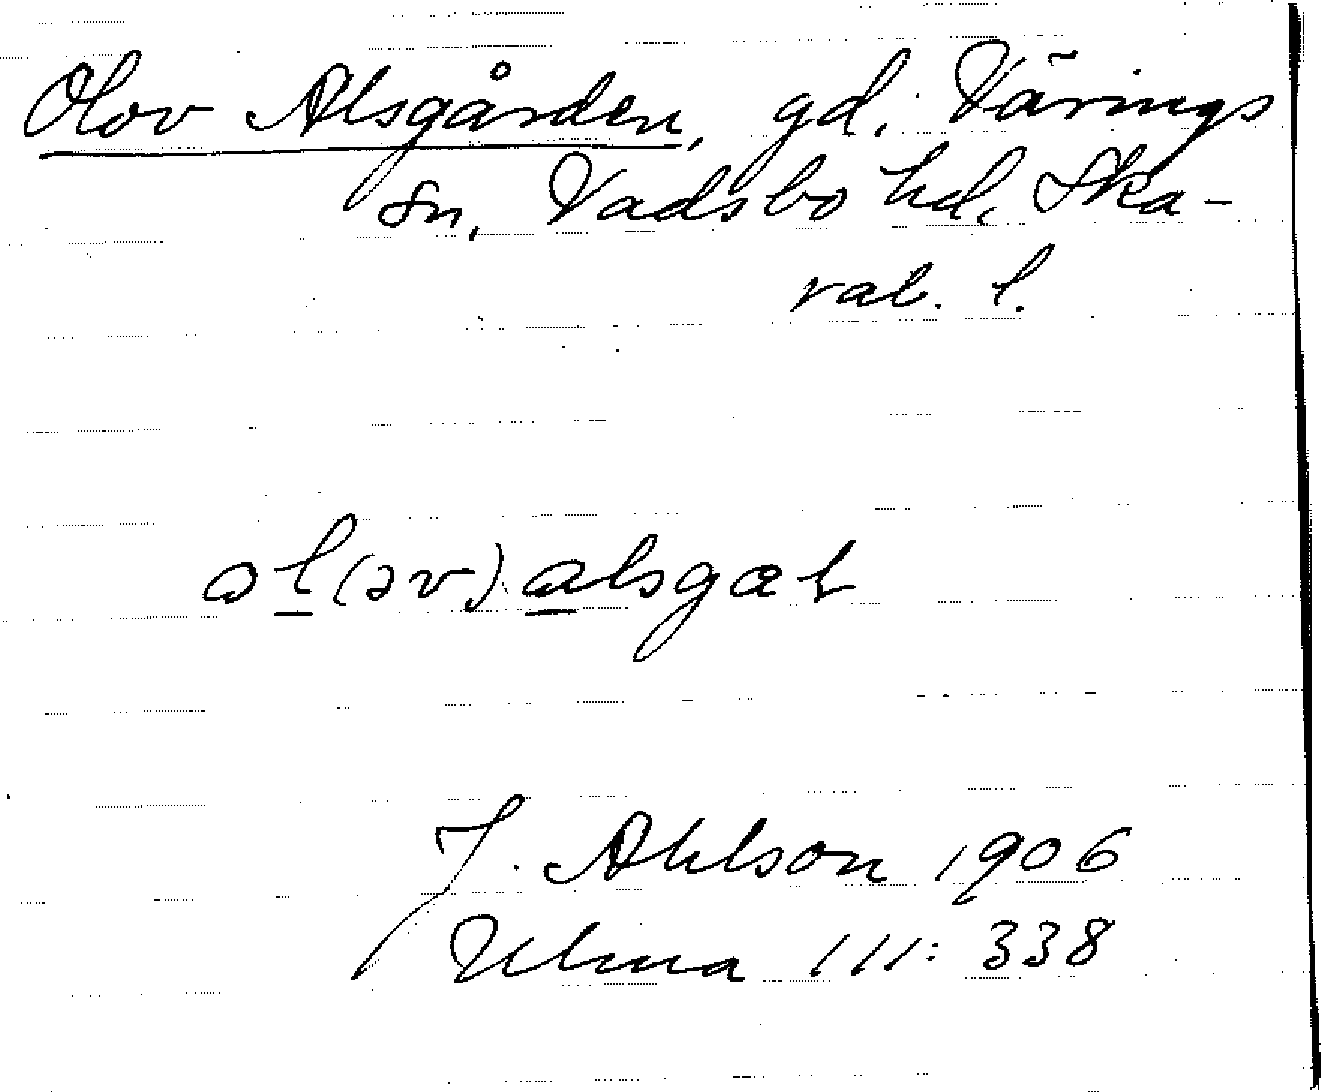 Olov Alsgården, gd. Värings
sn, Vadsbo hd, Ska-
rab. l.
ol(əv) alsgæt
J. Ahlson 1906
Ulma 111: 338